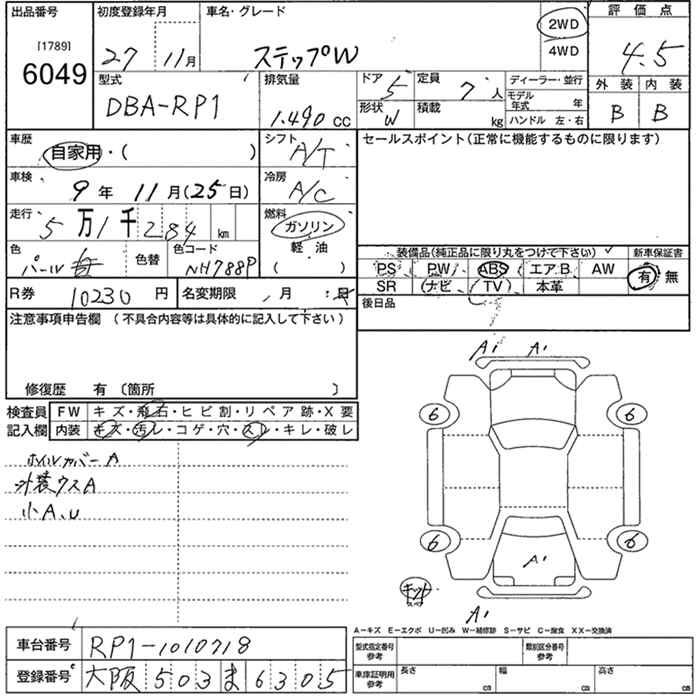 出品番号 初度登録年月 車名・グレード 評価点
[1789]
6049
27 11月 ステップW 2WD 4WD 4.5
型式 排気量 ドア 5 定員 7人 ディーラー・並行 外装 内装
DBA-RP1 1.490 cc 形状 W 積載 kg モデル年式 年 B B
ハンドル 左・右
車歴 自家用・( ) シフト A/T セールスポイント(正常に機能するものに限ります)
車検 9年 11月(25日) 冷房 A/C
走行 5万1千284 km 燃料 ガソリン
軽油
( )
色 パール 色替 色コード NH788P
装備品(純正品に限り丸をつけて下さい) 新車保証書
PS PW ABS エアB AW 有 無
SR ナビ TV 本革
R券 10230 円 名変期限 月 日
後日品
注意事項申告欄 (不具合内容等は具体的に記入して下さい)
修復歴 有 〔箇所 〕
検査員 FW キズ・飛石・ヒビ割・リペア跡・X要
記入欄 内装 キズ・汚レ・コゲ・穴・スレ・キレ・破レ
ホイルカバーA
外装ウスA
小A、U
A1 A1
6 6
6 6
A1
キット
A1
A-キズ E-エクボ U-凹み W-補修跡 S-サビ C-腐食 XX-交換済
車台番号 RP1-1010718
登録番号 大阪 503 ま 6305
型式指定番号 参考 類別区分番号 参考
車庫証明用 参考 長さ cm 幅 cm 高さ cm